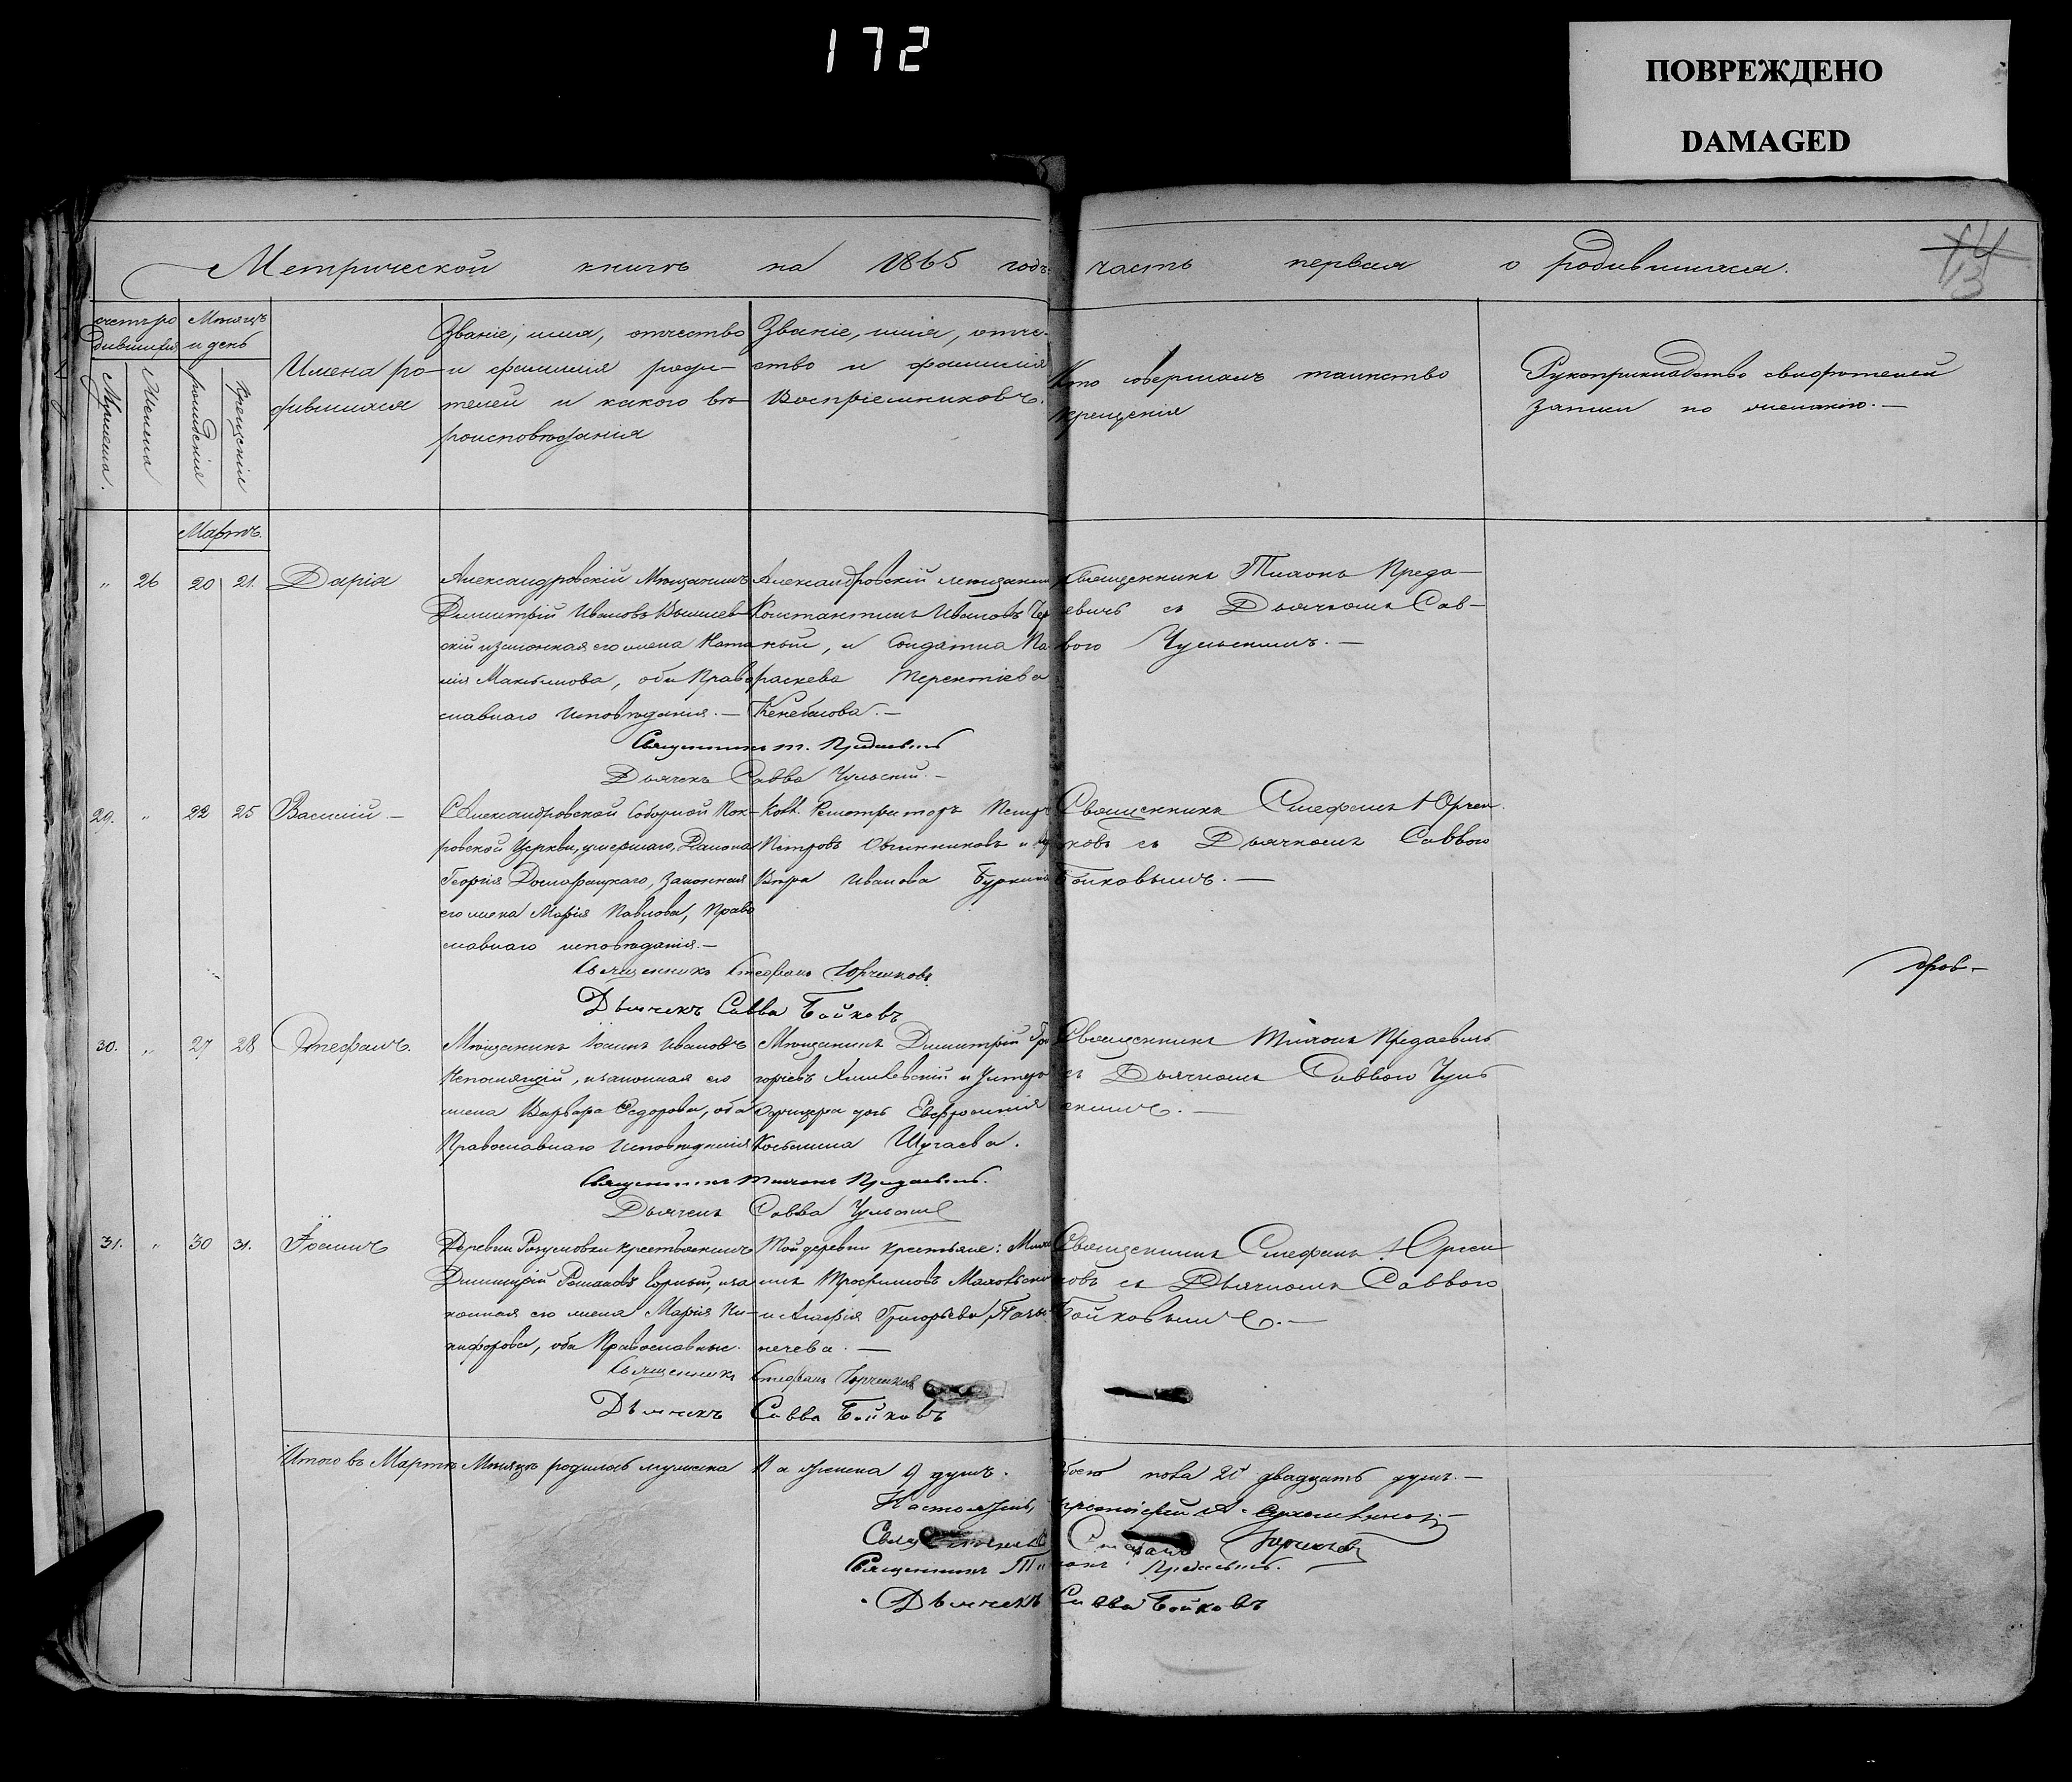 172
ПОВРЕЖДЕНО
DAMAGED
Метрической книги на 1865 годъ часть первая о родившихся.
13
Мѣсяцъ и день
Мужеска.
Женска
рожденія
Крещенія
Имена родившихся
Званіе, имя, отчество
и фамилія роди-
телей и какого вѣ-
роисповѣданія
Званіе, имя, отче-
ство и фамилія
Воспріемниковъ.
Кто совершалъ таинство
крещенія
Рукоприкладство свидѣтелей
записи по желанію.—
Мартъ.
" 26 20 21. Дарія
Александровскій Мѣщанинъ
Димитрій Ивановъ Вышнев-
скій и законная его жена Ната-
лія Максимова, оба Право-
славнаго исповѣданія.—
Александровскій мѣщанинъ
Константинъ Ивановъ Чер
ный, и Солдатка Па
раскева Терентіева
Священникъ Тихонъ Преда-
евичъ съ Дьячкомъ Сав-
вою Чульскимъ.—
Священникъ Т. Предаевичъ
Дьячекъ Савва Чульскій.—
29. " 22 25 Василій.—
Александровской Соборной Пок-
ровской Церкви, умершаго, Діакона
Георгія законная
его жена Марія Павлова, Право
славнаго исповѣданія.—
Регистраторъ Петръ
Петровъ Овчинниковъ и
Вѣра Иванова
Священникъ Стефанъ Юрчен
ковъ съ Дьячкомъ Саввою
Бойковымъ.—
Священникъ Стефанъ Юрченковъ.
Дьячекъ Савва Бойковъ
30. " 27 28 Стефанъ.
Мѣщанинъ Іоаннъ Ивановъ
Непомнящій, и законная его
жена Варвара Ѳедорова, оба
Православнаго исповѣданія
Мѣщанинъ Димитрій Гри
горіевъ и Унтеръ
Офицера дочь Евфросинія
Косьмина Шугаева.
Священникъ Тихонъ Предаевичъ
съ Дьячкомъ Саввою Чуль
скимъ.—
Священникъ Тихонъ Предаевичъ.
Дьячекъ Савва Чульскій
31. " 30 31. Іоаннъ
Деревни Разумовки крестьянинъ
Димитрій Романовъ Горный, и за
конная его жена Марія Ни-
кифорова, оба Православные.
Той деревни крестьяне: Миха
илъ Трофимовъ
и Агафія Григорьева
Священникъ Стефанъ Юрчен
ковъ съ Дьячкомъ Саввою
Бойковымъ.—
Священникъ Стефанъ Юрченковъ
Дьячекъ Савва Бойковъ
Итого въ Мартѣ Мѣсяцѣ родилось мужеска 11 а женска 9 душъ. Обоего пола 20 двадцать душъ.—
Настоятель, протоіерей
Священникъ Стефанъ Юрченковъ
Священникъ Тихонъ Предаевичъ.
Дьячекъ Савва Бойковъ